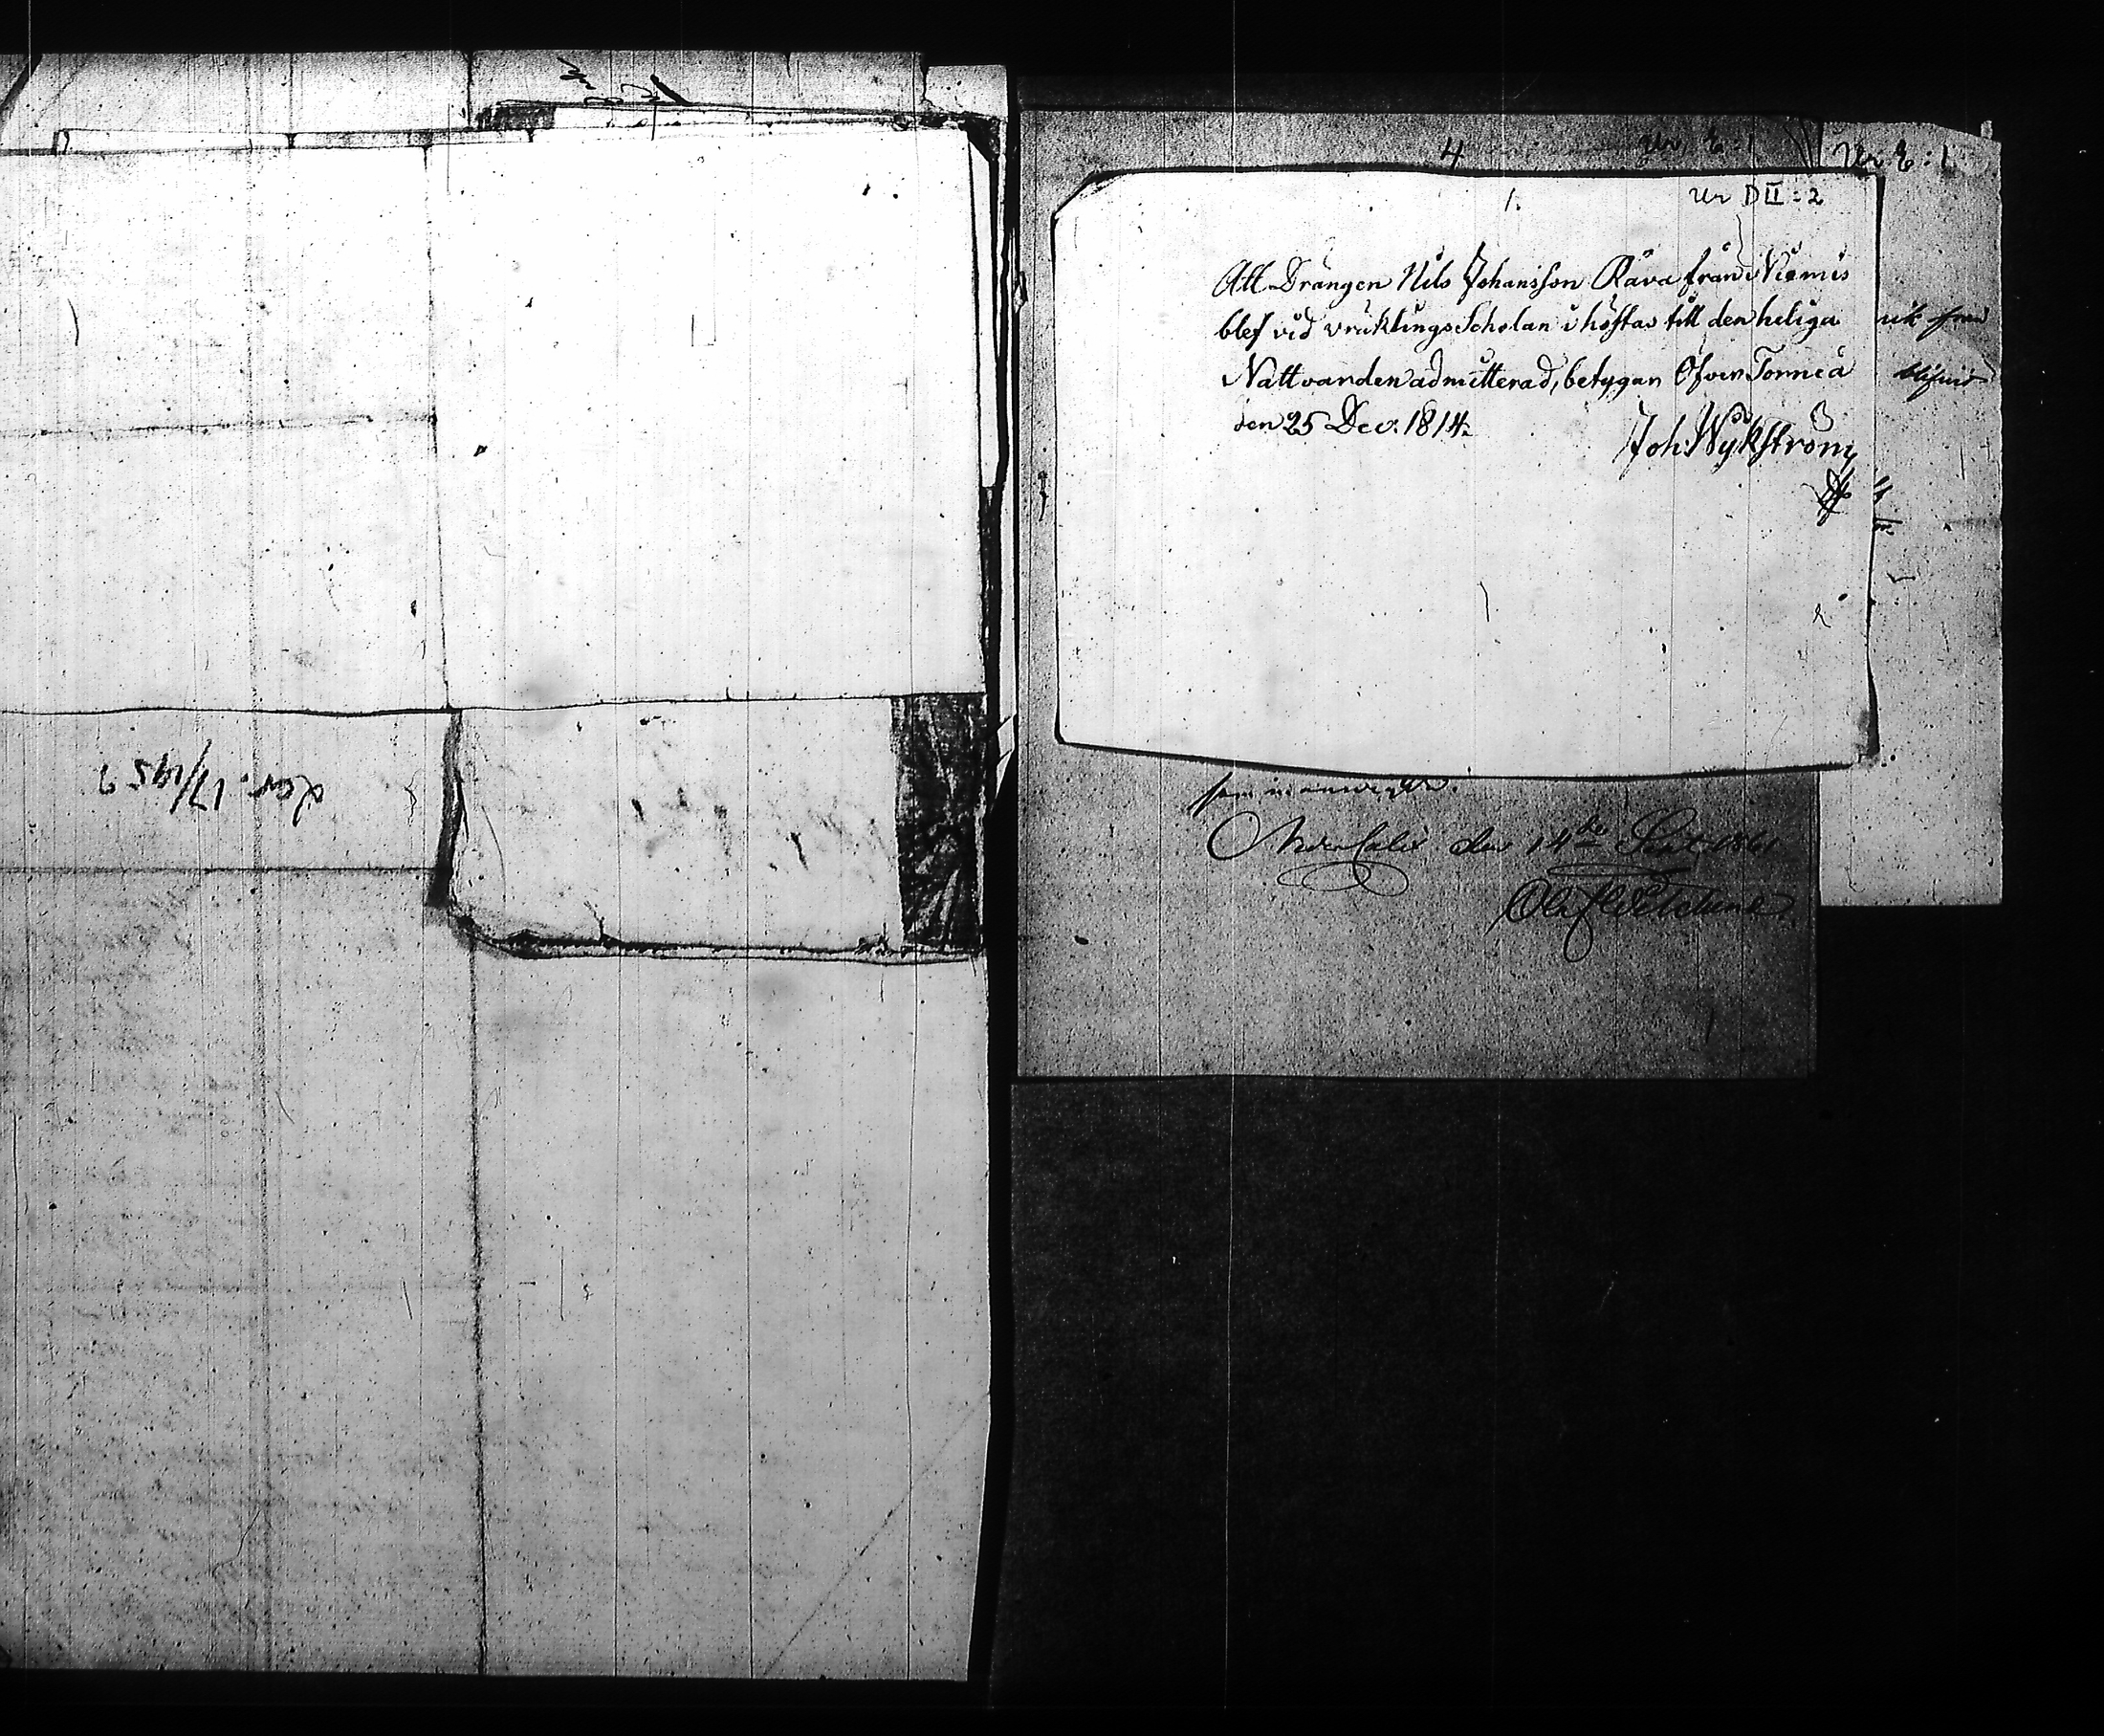 Acc. 17/1459
4
Ur E:1
Ur E:1
1.
Ur D II:2
Att Drängen Nils Johansson Räva från Niemis
blef vid vräklings Scholan i höstas till den heliga
Nattvarden admitterad, betygar Öfver Torneå
den 25 Dec. 1814.
Joh: Wykström
blifvit
Neder Calix den 14de Sept. 1861